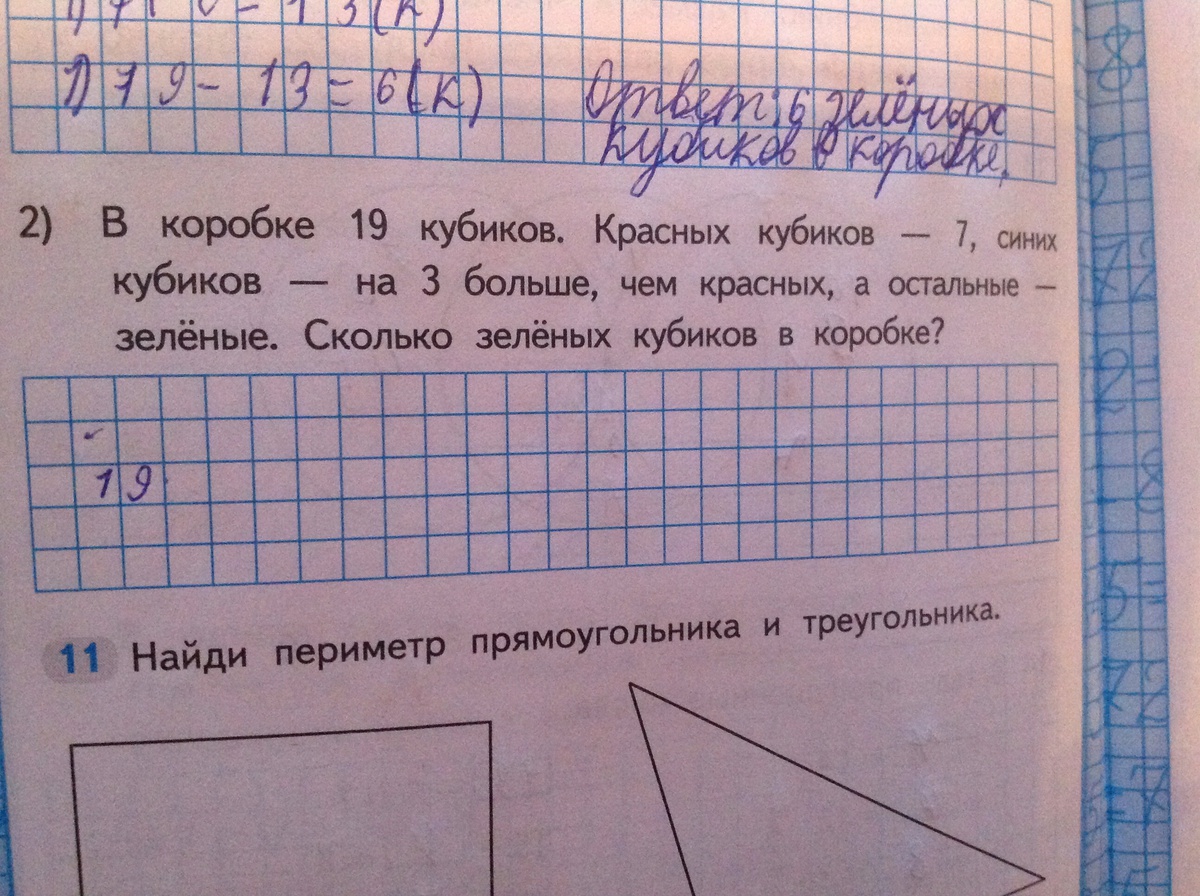 1) 19 - 13 = 6 (к) Ответ: 6 зелёных
кубиков в коробке.
2) В коробке 19 кубиков. Красных кубиков — 7, синих
кубиков — на 3 больше, чем красных, а остальные —
зелёные. Сколько зелёных кубиков в коробке?
19
11 Найди периметр прямоугольника и треугольника.